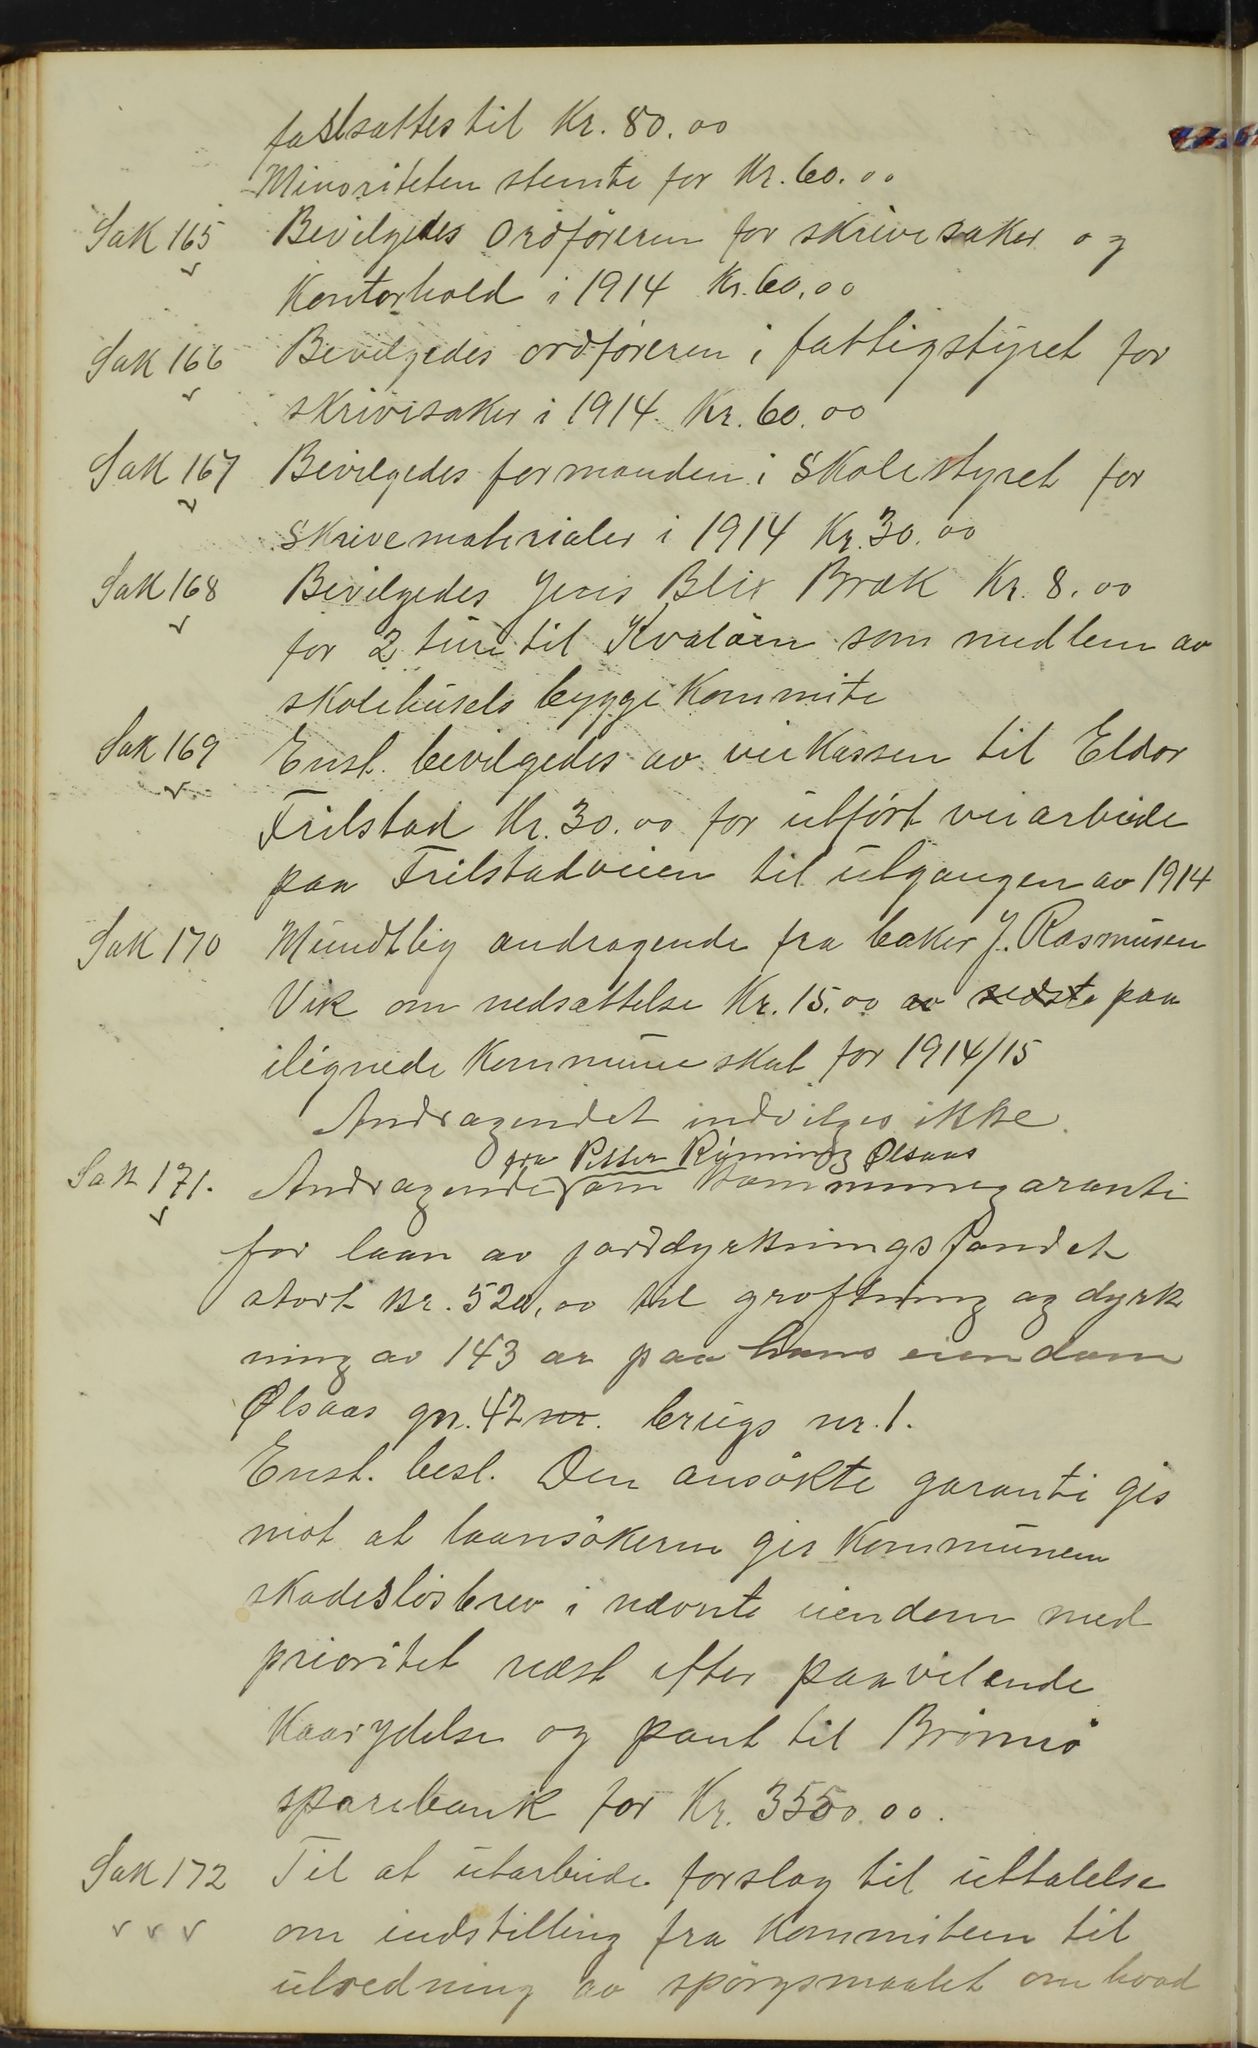 fastsattes til Kr. 80.00
Minoriteten stemte for Kr. 60.00
Sak 165 Bevilgedes ordføreren for skrivesaker og
Kontorhold i 1914 Kr. 60,00
Sak 166 Bevilgedes ordføreren i fattigstyret for
skrivesaker i 1914 Kr. 60.00
Sak 167 Bevilgedes formanden i Skolestyret for
skrivematerialer i 1914 Kr. 30.00
Sak 168 Bevilgedes Jens Blix Bræk Kr. 8.00
for 2 ture til Kvaløen som medlem av
skolehusets byggekommite
Sak 169 Enst. bevilgedes av veikassen til Eldor
Trilstad Kr. 30.00 for utført veiarbeide
paa Trilstadveien til utgangen av 1914
Sak 170 Mundtlig andragende fra baker J. Rasmusen
Vik om nedsættelse Kr. 15.00 av sidste paa
ilignede Kommuneskat for 1914/15
Andragendet indvilges ikke.
fra Petter Rønning Ølsaas
Sak 171. Andragende om kommunegaranti
for laan av jorddyrkningsfondet
stort kr. 520,00 til grøftning og dyrk
ning av 143 ar paa hans eiendom
Ølsaas gn. 42 nr. brugs nr. 1.
Enst. besl. Den ansøkte garanti gis
mot at laansøkeren gir Kommunen
skadesløsbrev i nævnte eiendom med
prioritet næst efter paavilende
Kaarydelse og pant til Brønnø
sparebank for Kr. 3550.00.
Sak 172 Til at utarbeide forslag til uttalelse
om indstilling fra Kommiteen til
utredning av spørgsmaalet om hvad